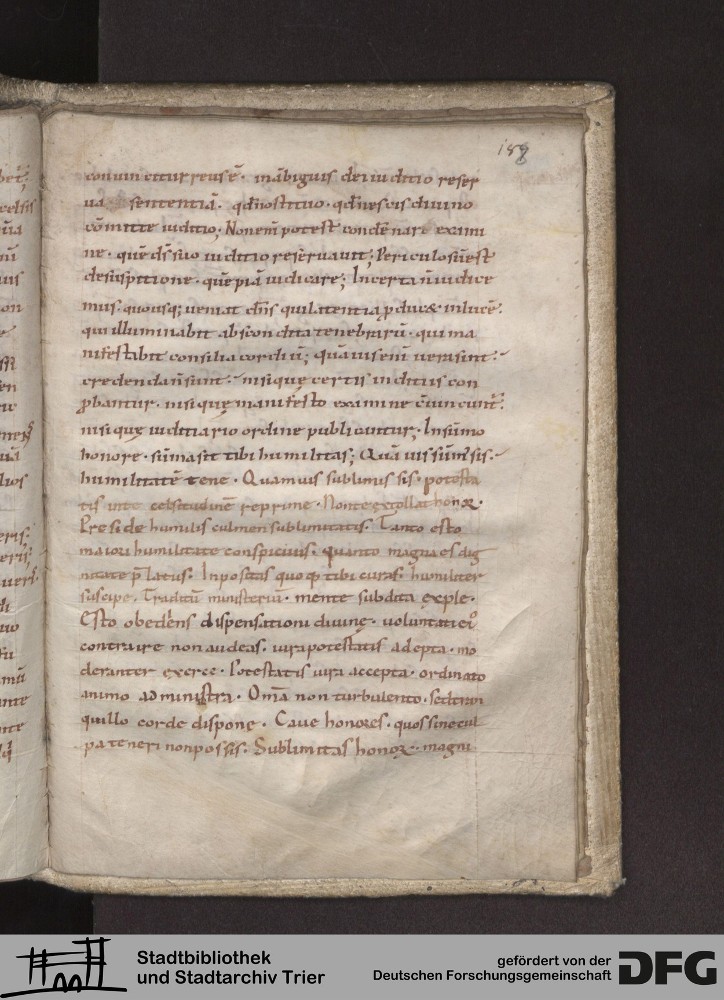 158
conuincitur reus ē. in ābiguis dei iuditio reser
ua sententiā. qđ nosti tuo. qđ nescis diuino
cōmitte iuditio; Non enī potest condēnari exami
ne. quē dš suo iuditio reseruauit; Periculosū est
de suspitione. quēpiā iudicare; Incerta ñ iudice
mus. quousq; ueniat dn̄s qui latentia ꝓducet in lucē.
qui illuminabit abscondita tenebrarū. qui ma
nifestabit consilia cordiū; quāuis enī uera sint.
credenda ñ sunt. nisi quę certis inditiis con
ꝓbantur. nisi quę manifesto examine
nisi quę iuditiario ordine publicantur. In sūmo
honore. sūma sit tibi humilitas; Quāuis sūm sis.
humilitatē tene. Quamuis sublimis sis. potesta
tis in te celsitudinē reprime. Non te extollat honor.
Preside humilis culmen sublimitatis. Tanto esto
maiori humilitate conspicuus. quanto magna es dig
nitate p̄latus. Inpositas quoq; tibi curas. humiliter
suscipe. Traditū ministeriū. mente subdita exple.
Esto obediens dispensationi diuinę. uoluntati ei
contraire non audeas. iura potestatis adepta. mo
deranter exerce. Potestatis iura accepta. ordinato
animo administra. Omā non turbulento. sed tran
quillo corde dispone. Caue honores. quos sine cul
pa teneri non possis. Sublimitas honorę. magni
Stadtbibliothek
und Stadtarchiv Trier
gefördert von der
Deutschen Forschungsgemeinschaft
DFG